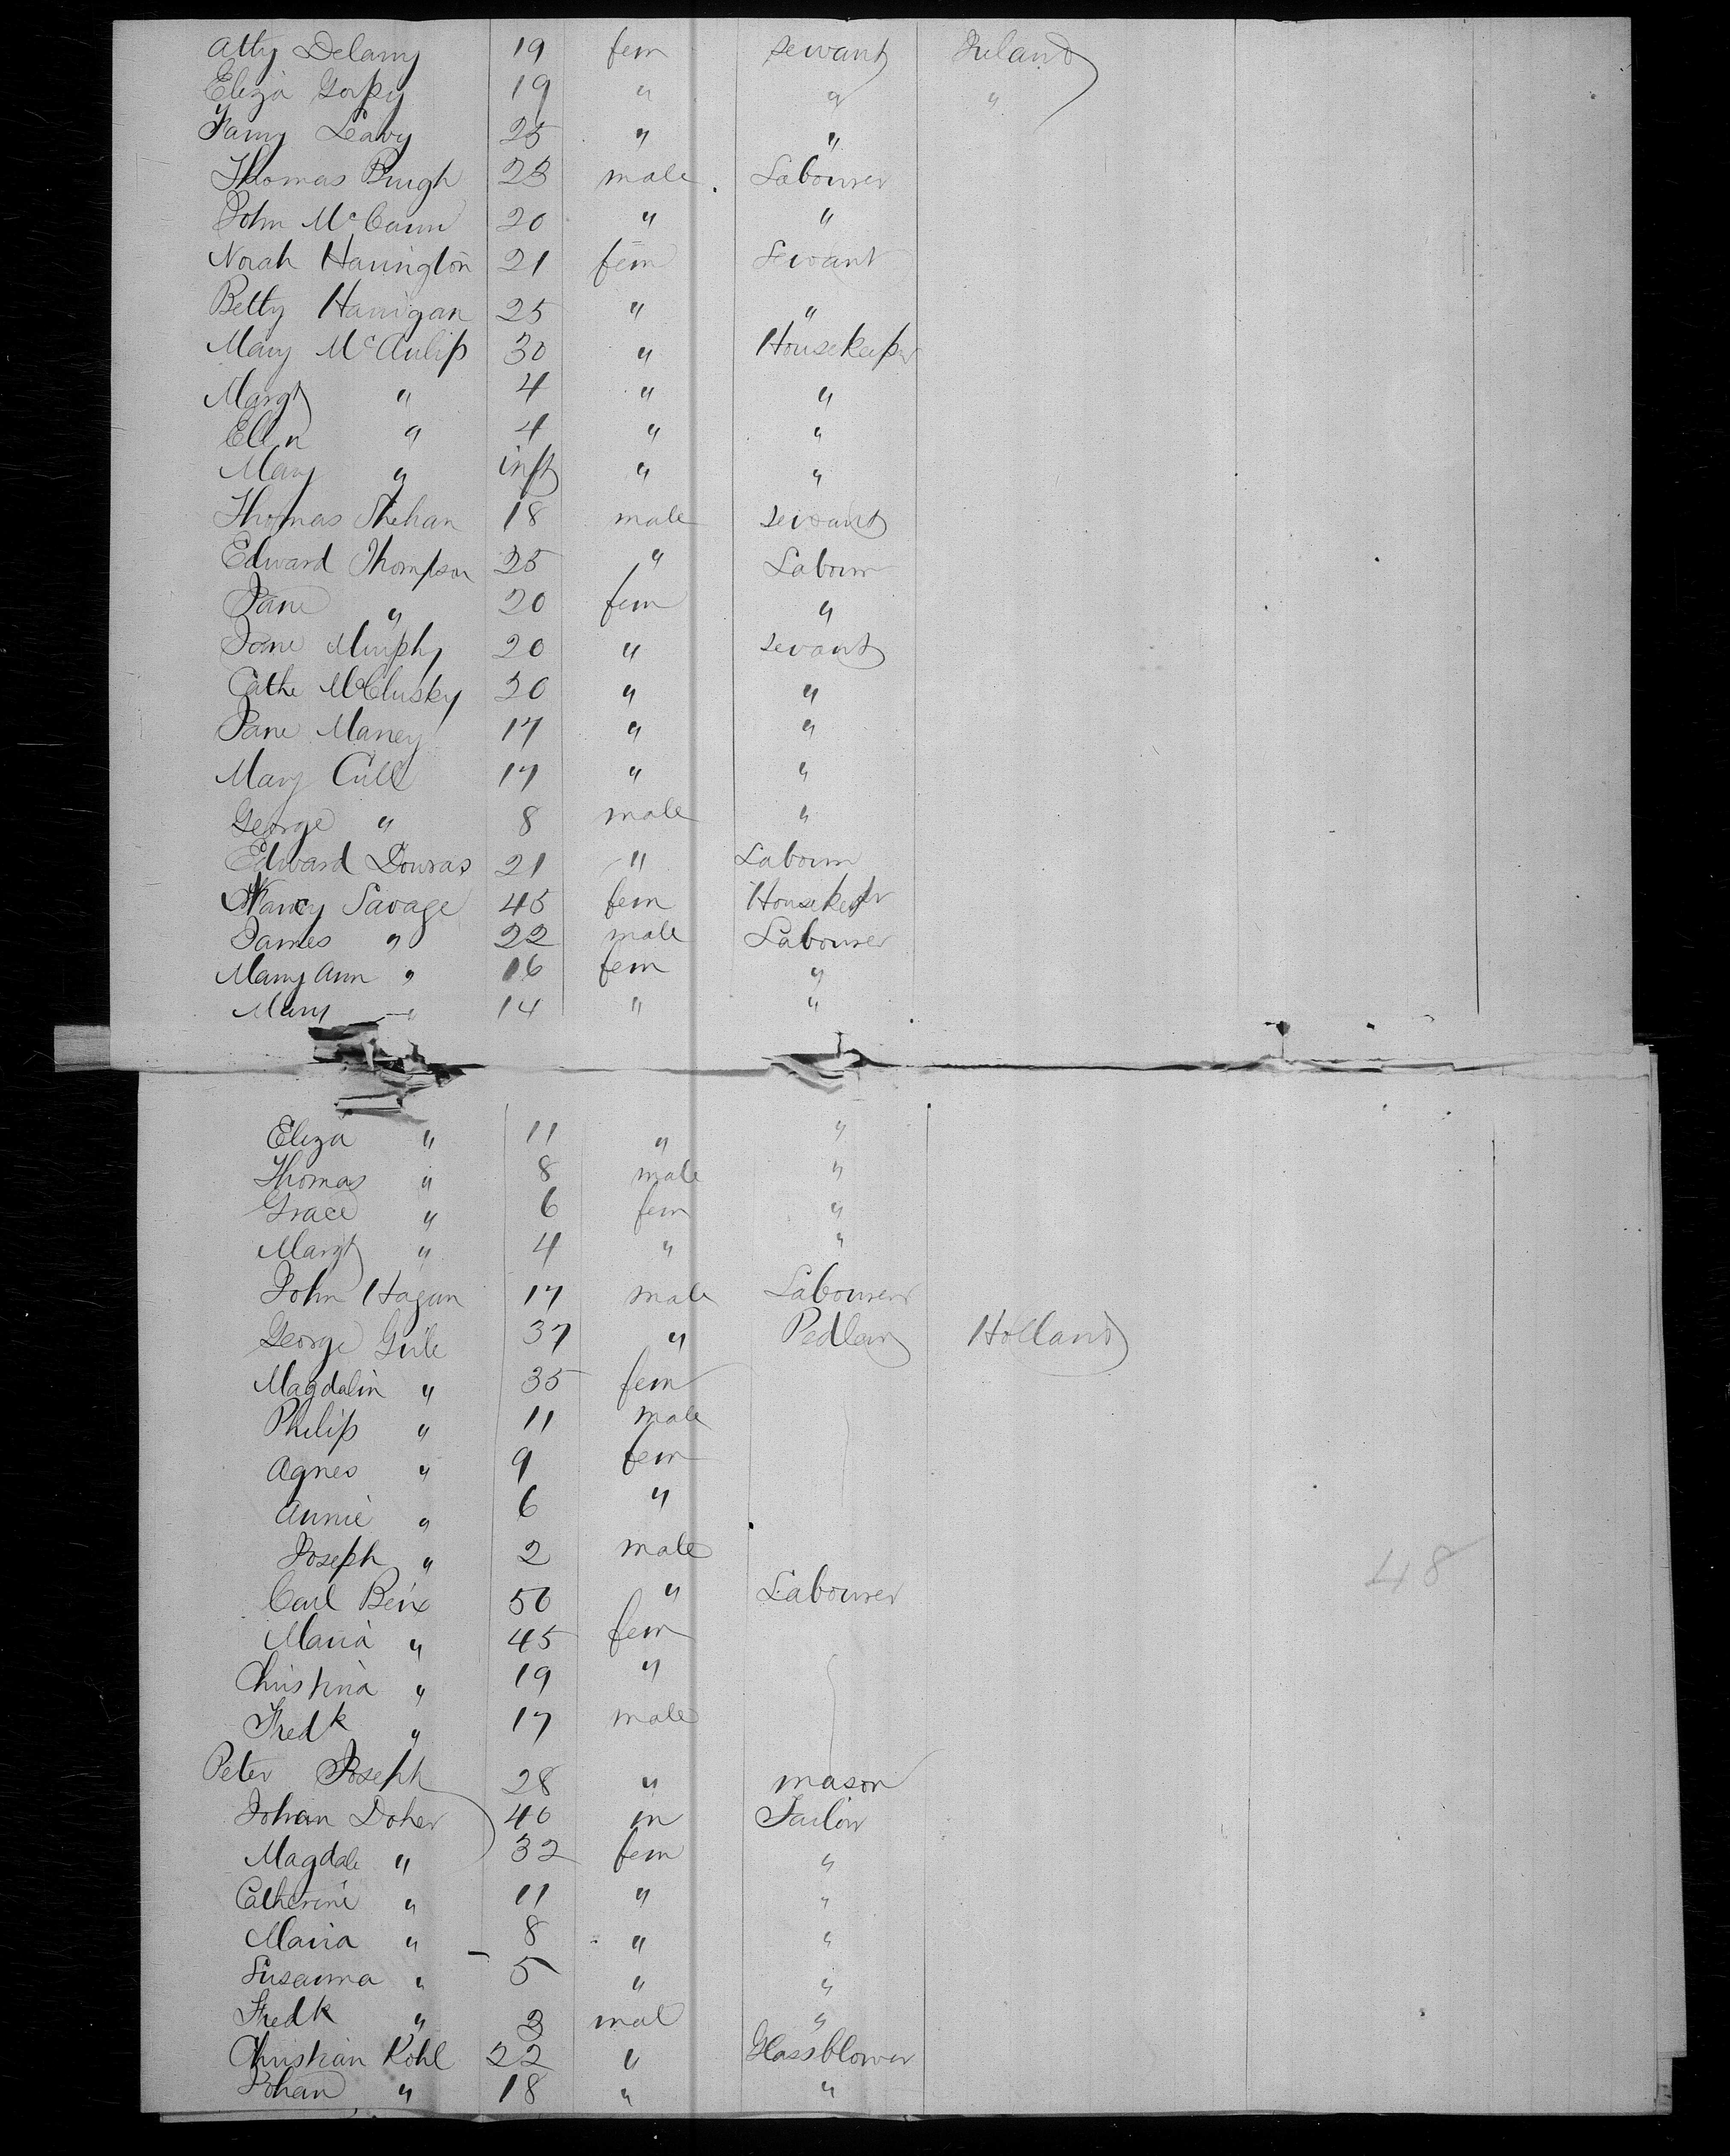 Atty Delany 19 fem servant Ireland
Eliza Gorpy 19 " " "
Fanny Leavy 25 " "
Thomas Brugh 23 male Labourer
John McCann 20 " "
Norah Harrington 21 fem Servant
Betty Harrigan 25 " "
Mary McAulip 30 " Housekeeper
Margt " 4 " "
Ellen " 4 " "
Mary " inft " "
Thomas Shehan 18 male servant
Edward Thompson 25 " Labourr
Jane " 20 fem "
Jane Murphy 20 " servant
Cathe McClusky 20 " "
Jane Maney 17 " "
Mary Cull 17 " "
George " 8 male "
Edward Douras 21 " Labourr
Nancy Savage 45 fem Housekeepr
James " 22 male Labourer
Mary Ann " 16 fem "
Mary " 14 " "
Eliza " 11 " "
Thomas " 8 male "
Grace " 6 fem "
Margt " 4 " "
John Hagan 17 male Labourer
George Guile 37 " Pedlar Holland
Magdalin " 35 fem
Philip " 11 male
Agnes " 9 fem
Annie " 6 "
Joseph " 2 male
48
Carl Beix 50 " Labourer
Maria " 45 fem
Christina " 19 "
Fredk " 17 male
Peter Joseph 28 " mason
Johan Doher 40 m Tailor
Magdale " 32 fem "
Catherine " 11 " "
Maria " 8 " "
Susanna " 5 " "
Fredk " 3 mal "
Christian Kohl 22 " Glassblower
Johan " 18 " "